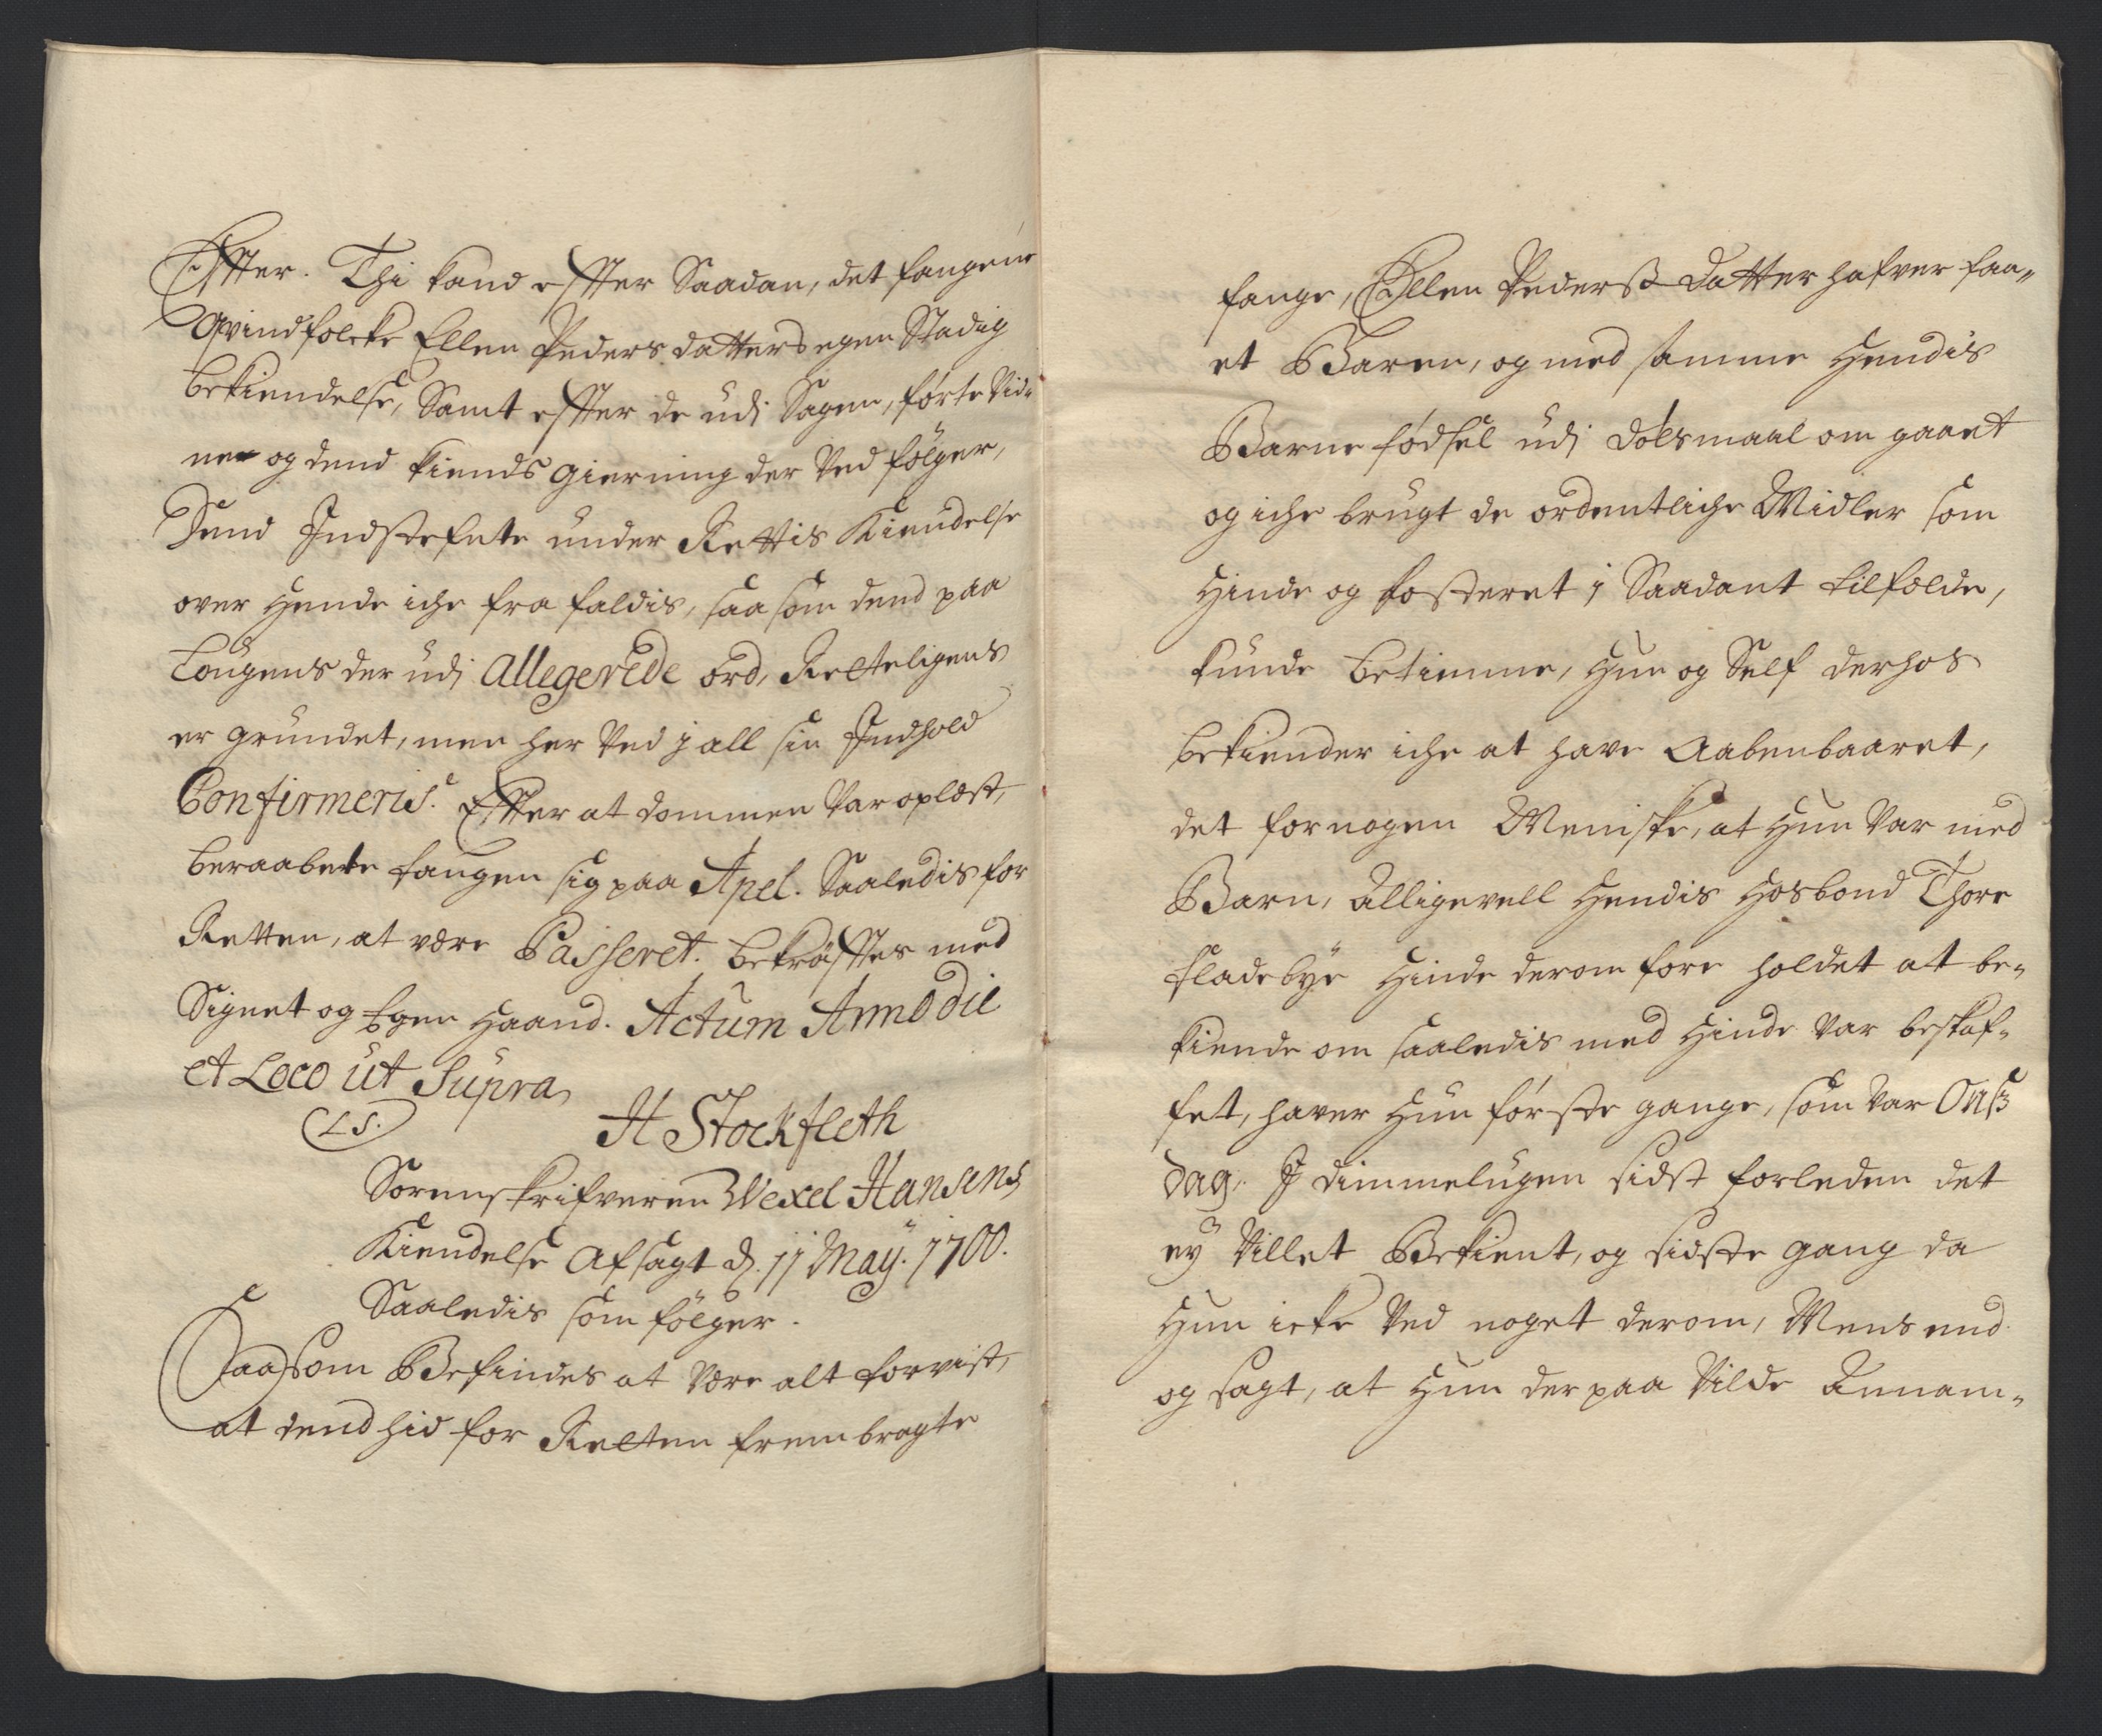 Effter. Thi kand effter Saadan, det fangene
Qvindfolcke Ellen Peders datters egen Stadig
bekiendelse, Samt effter de udj Sagen, førte Vid-
ner og dend kiends gierning der Ved følger,
Dend Indstefnte under Rettis Kiendelse
over Hende iche fra faldis, saa som dend paa
Lougens der udj Allegerede ord, Retteligens
er grundet, men her Ved j all sin Indhold
Confirmeris. Effter at dommen Var oplæst,
beraabete fangen sig paa Apel. Saaledis for
Retten, at være Passeret. bekräfftes med
Signet og Egen Haand. Actum Anno die
et Loco ut Supra
(L S.) H Stockfleth
Sorenskrifveren Wexel Hansens
Kiendelse Afsagt d. 11 May. 1700.
Saaledis som følger.
Saasom Befindes at Være alt forvist,
at dend hid for Retten frembragte
fange, Ellen Pederß Datter hafver faa-
et Baren, og med samme Hendis
Barne fødsel udj dølsmaal om gaaet
og iche brugt de ordentliche Midler som
Hinde og fosteret i Saadant tilfelde,
kunde betimme, Hun og Self derhos
bekiender iche at have Aabenbaaret,
det for nogen Meniske, at Hun Var med
Barn, Alligevell Hendis Hosbond Thore
fladebye Hinde derom fore holdet at be-
kiende om saaledis med Hinde Var beskaf-
fet, haver Hun første gange, som Var Onß
dag. I dimmelugen sidst forleden det
ey Villet Bekient, og sidste gang da
Hun icke Ved noget derom, Mens end
og sagt, at Hun der paa Vilde Annam-